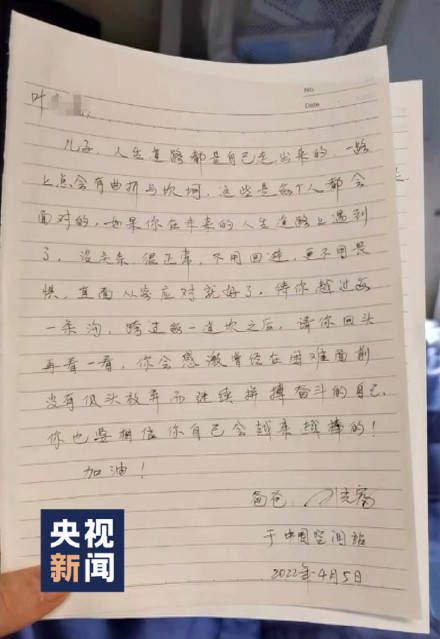 No.
Date
叶
儿子，人生道路都是自己走出来的，一路
上总会有曲折与坎坷，这些是每个人都会
面对的，如果你在未来的人生道路上遇到
了，没关系，很正常，不用回避，更不用畏
惧，直面从容应对就好了。待你越过每
一条沟，跨过每一道坎之后，请你回头
再看一看，你会感激曾经在困难面前
没有低头放弃而继续拼搏奋斗的自己。
你也要相信你自己会越来越棒的！
加油！
爸爸：叶光富
于中国空间站
2022年4月5日
央视
新闻